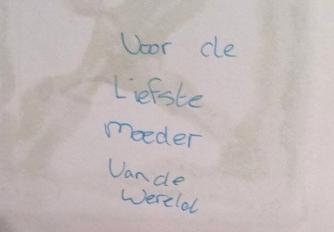 Voor de
Liefste
moeder
Van de
Wereld